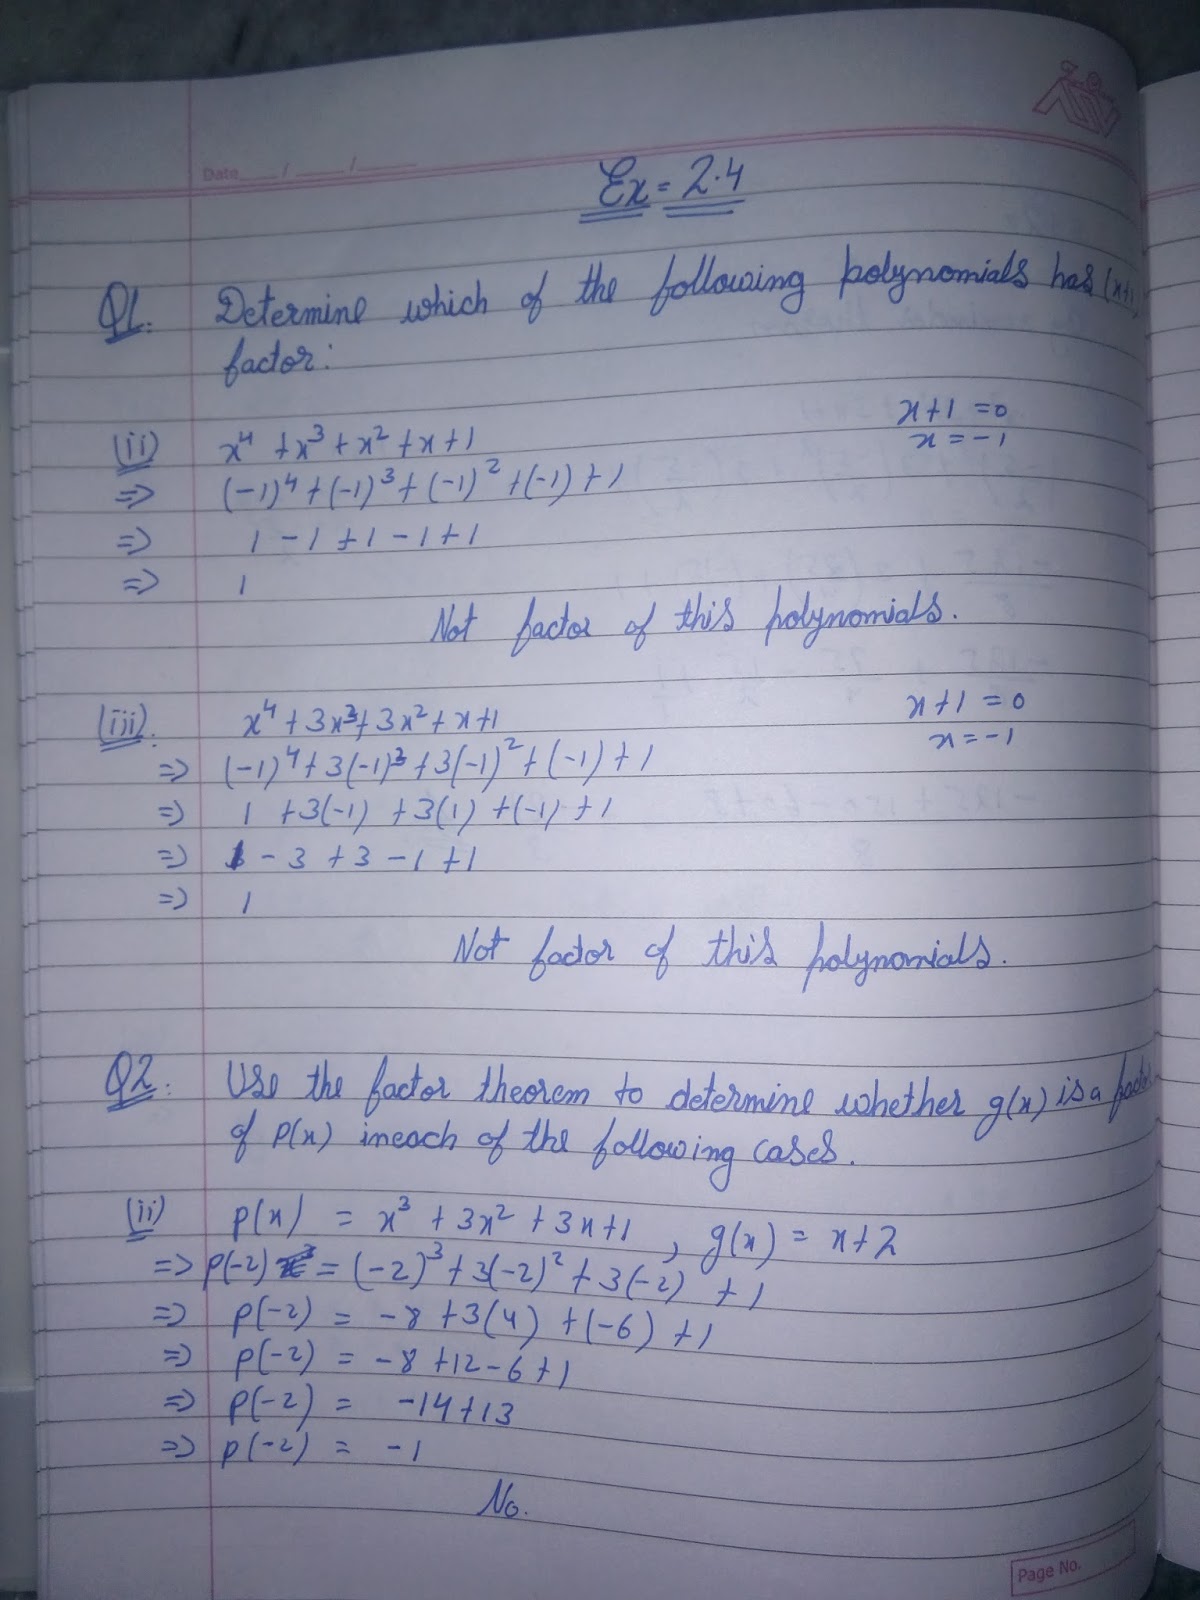 Date ___/___/___
Ex = 2.4
Q1. Determine which of the following polynomials has (x+1)
factor:
(ii) x⁴ + x³ + x² + x + 1 x+1 = 0
⇒ (-1)⁴ + (-1)³ + (-1)² + (-1) + 1 x = -1
⇒ 1 - 1 + 1 - 1 + 1
⇒ 1
Not factor of this polynomials.
(iii). x⁴ + 3x³ + 3x² + x + 1 x+1 = 0
⇒ (-1)⁴ + 3(-1)³ + 3(-1)² + (-1) + 1 x = -1
⇒ 1 + 3(-1) + 3(1) + (-1) + 1
⇒ 1 - 3 + 3 - 1 + 1
⇒ 1
Not factor of this polynomials.
Q2. Use the factor theorem to determine whether g(x) is a factor
of P(x) in each of the following cases.
(ii) p(x) = x³ + 3x² + 3x + 1 , g(x) = x + 2
⇒ p(-2) = (-2)³ + 3(-2)² + 3(-2) + 1
⇒ p(-2) = -8 + 3(4) + (-6) + 1
⇒ p(-2) = -8 + 12 - 6 + 1
⇒ p(-2) = -14 + 13
⇒ p(-2) = -1
No.
Page No.